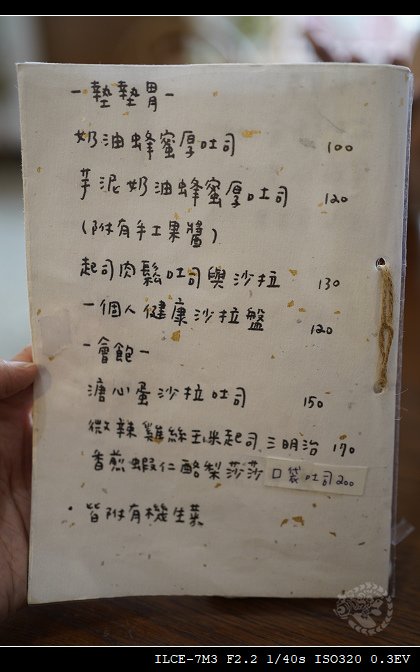 －墊墊胃－
奶油蜂蜜厚吐司 100
芋泥奶油蜂蜜厚吐司 120
(附有手工果醬)
起司肉鬆吐司與沙拉 130
一個人健康沙拉盤 120
－會飽－
溏心蛋沙拉吐司 150
微辣雞絲玉米起司三明治 170
香煎蝦仁酪梨莎莎口袋吐司200
・皆附有機生菜
ILCE-7M3 F2.2 1/40s ISO320 0.3EV